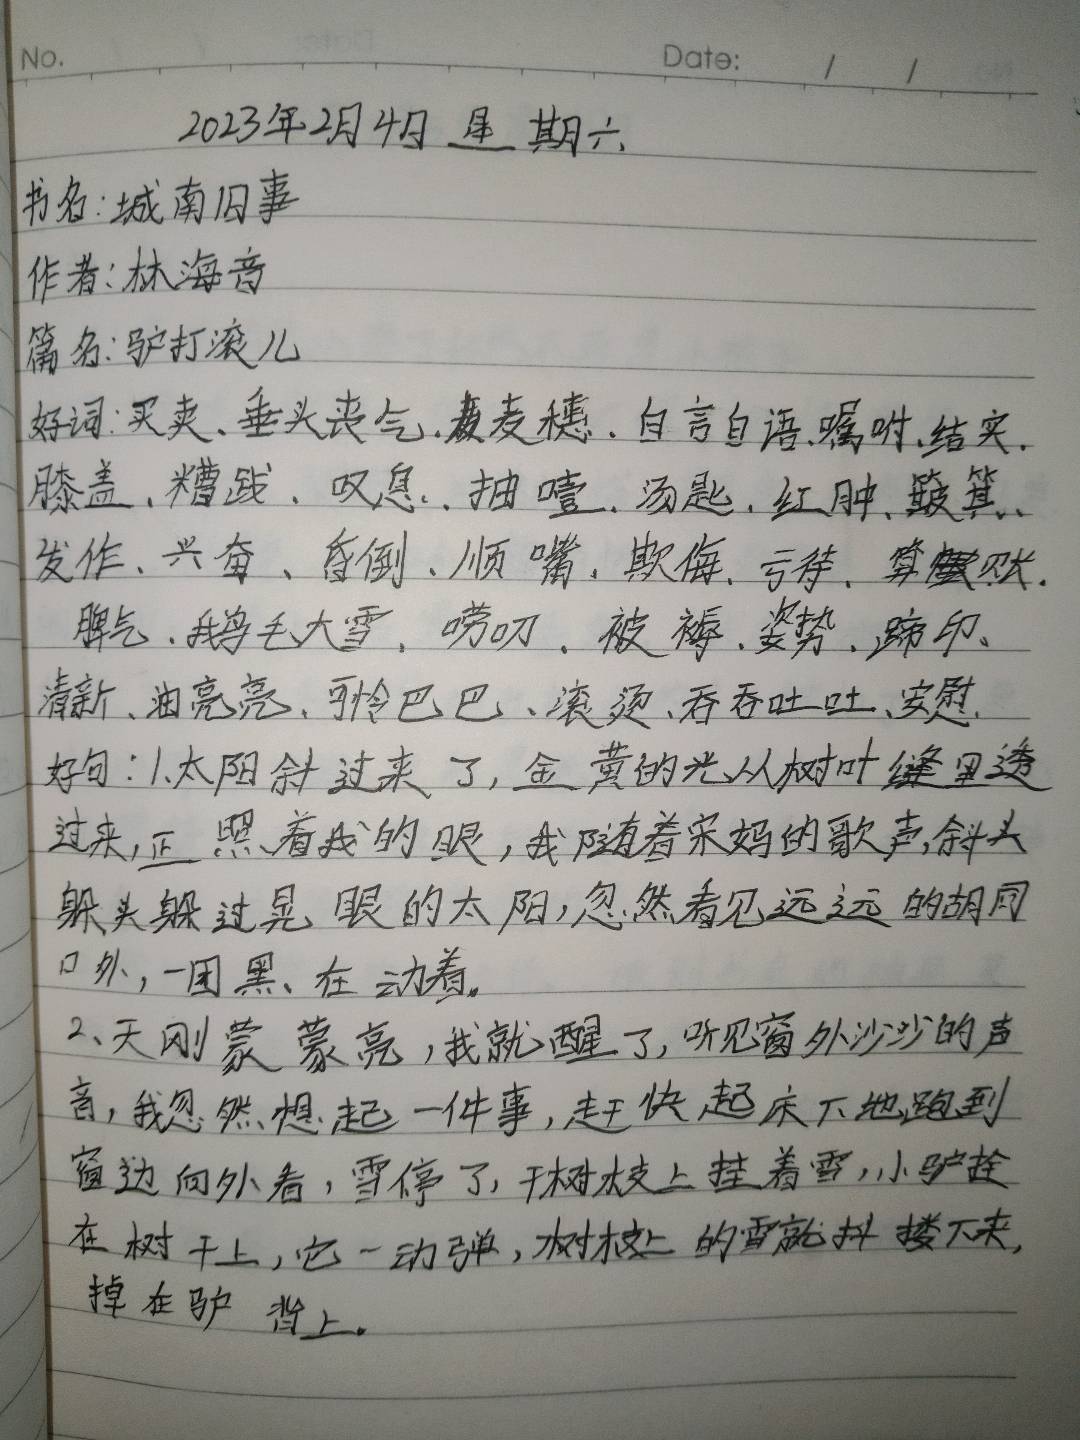 No. Date: / /
2023年2月4日 星期六
书名:城南旧事
作者:林海音
篇名:驴打滚儿
好词:买卖、垂头丧气、麦穗、自言自语、嘱咐、结实、
膝盖、糟践、叹息、抽噎、汤匙、红肿、簸箕、
发作、兴奋、昏倒、顺嘴、欺侮、亏待、算账、
脾气、鹅毛大雪、唠叨、被褥、姿势、蹄印、
清新、油亮亮、可怜巴巴、滚烫、吞吞吐吐、安慰、
好句:1、太阳斜过来了,金黄的光从树叶缝里透
过来,正照着我的眼,我随着宋妈的歌声,斜头
躲头躲过晃眼的太阳,忽然看见远远的胡同
口外,一团黑、在动着。
2、天刚蒙蒙亮,我就醒了,听见窗外沙沙的声
音,我忽然想起一件事,赶快起床下地跑到
窗边向外看,雪停了,干树枝上挂着雪,小驴拴
在树干上,它一动弹,树枝上的雪就抖搂下来,
掉在驴背上。